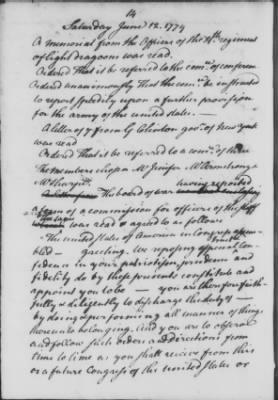 14
Saturday June 12. 1779
A memorial from the Officers of the 4th. regiment
of light dragoons was read.
Ordered That it be referred to the comee. of conference
Ordered unanimously That the comee. be instructed
to report speedily upon a further provision
for the army of the united states. —
A letter of 7 from G Clinton govr. of New York
was read
Ordered That it be referred to a comee. of three
The members chosen Mr Jenifer Mr Armstrong &
Mr Huntingtn.
The board of war having reported
a form of a commission for officers of the
was read & agreed to as follows
The united states of America in Congress assem
bled — Greeting. We reposing especial trust & con
fidence in your patriotism, prudence and
fidelity do by these presents constitute and
appoint you to be — you are therefore faith
fully & diligently to discharge the duty of —
by doing & performing all manner of things
thereunto belonging. And you are to observe
and follow such orders and directions from
time to time as you shall receive from this
or a future Congress of the united states or